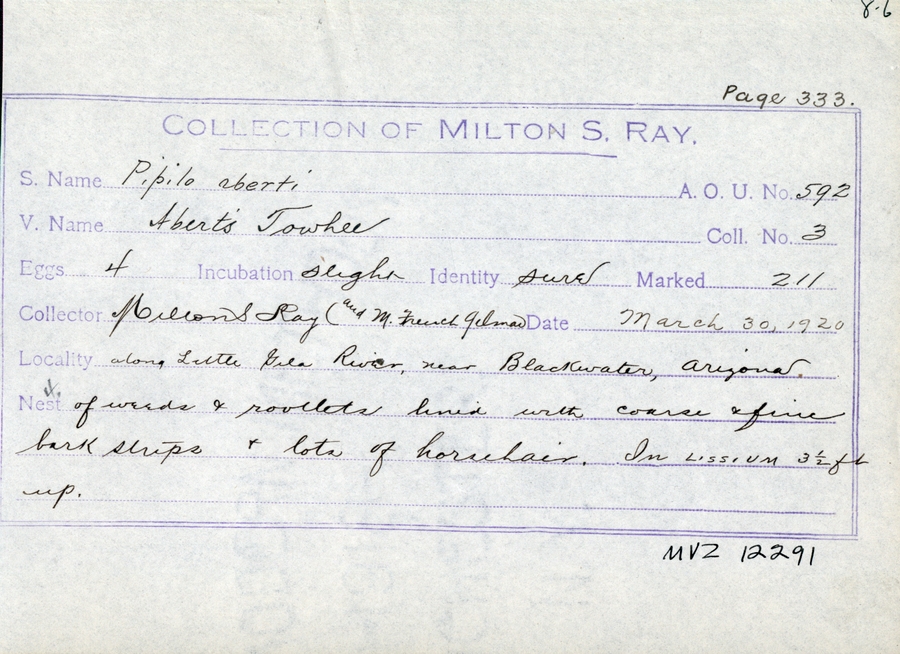 8.6
Page 333.
COLLECTION OF MILTON S. RAY.
S. Name Pipilo aberti A. O. U. No. 592
V. Name Abert's Towhee Coll. No. 3
Eggs 4 Incubation slight Identity sure Marked 211
Collector Milton S Ray (and M. French Gilman Date March 30, 1920
Locality along Little Gila River, near Blackwater, Arizona.
Nest of weeds & rootlets lined with coarse & fine
bark strips & lots of horsehair. In LISSIUM 3½ ft
up.
MVZ 12291